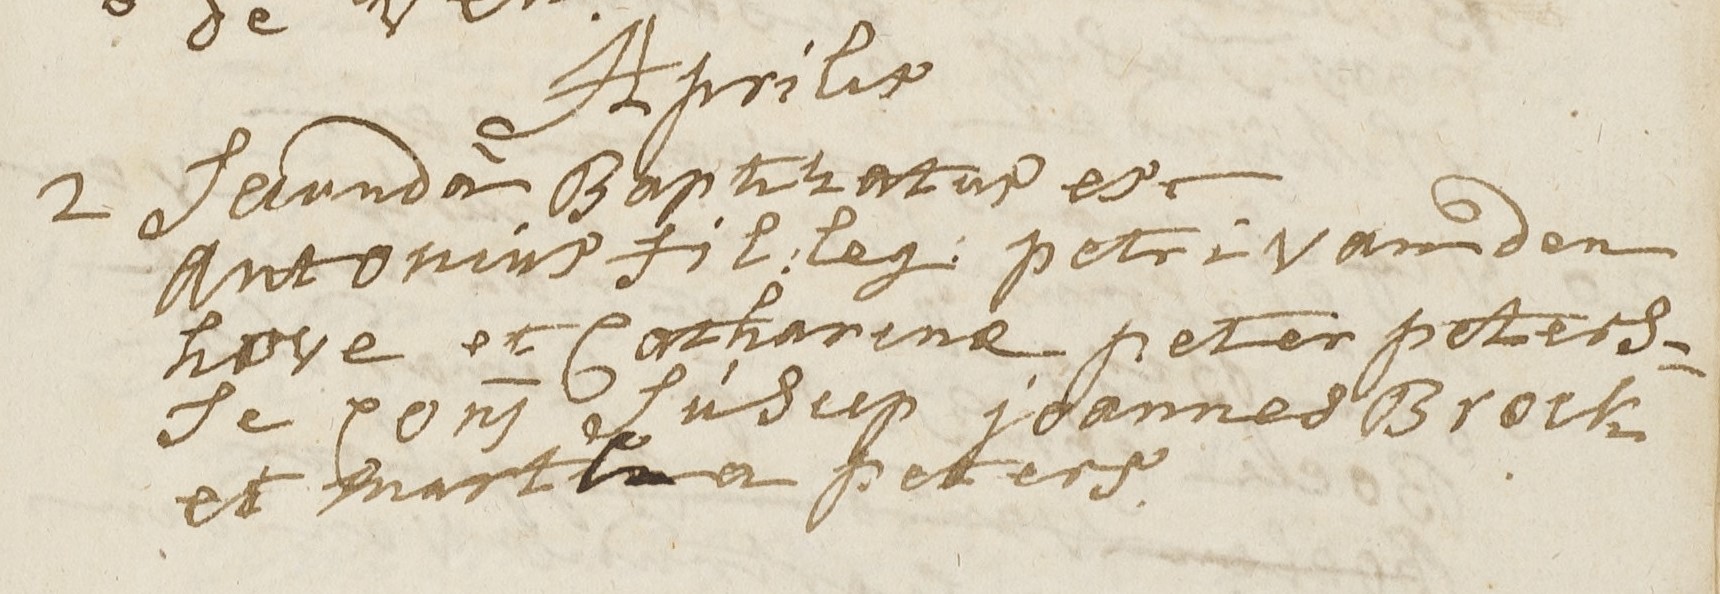 de Ven.
Aprilis
2 Secunda Baptizatus est
Antonius fil: leg: petri van den
hove et Catharinæ peter peters=
Se conj Susup joannes Brock
et martha peters.